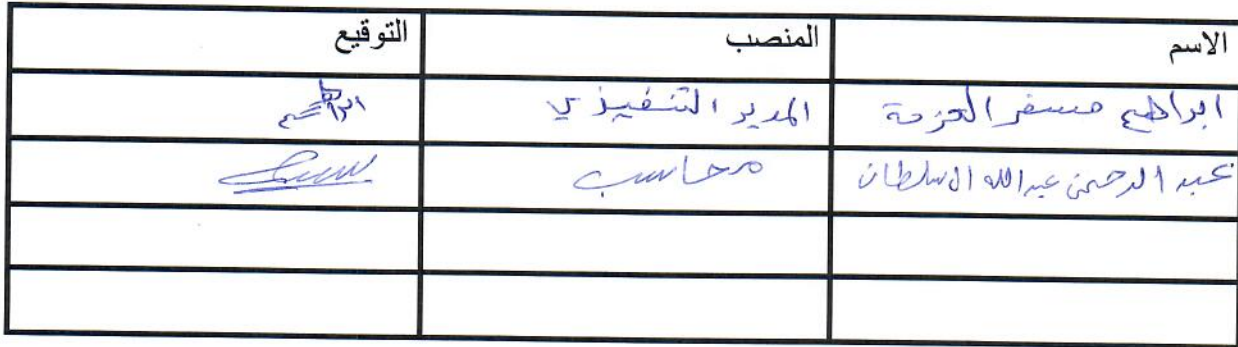 الاسم المنصب التوقيع
ابراهيم مسفر العزمة المدير التنفيذي ابراهيم
عبد الرحمن عبدالله السلطان محاسب